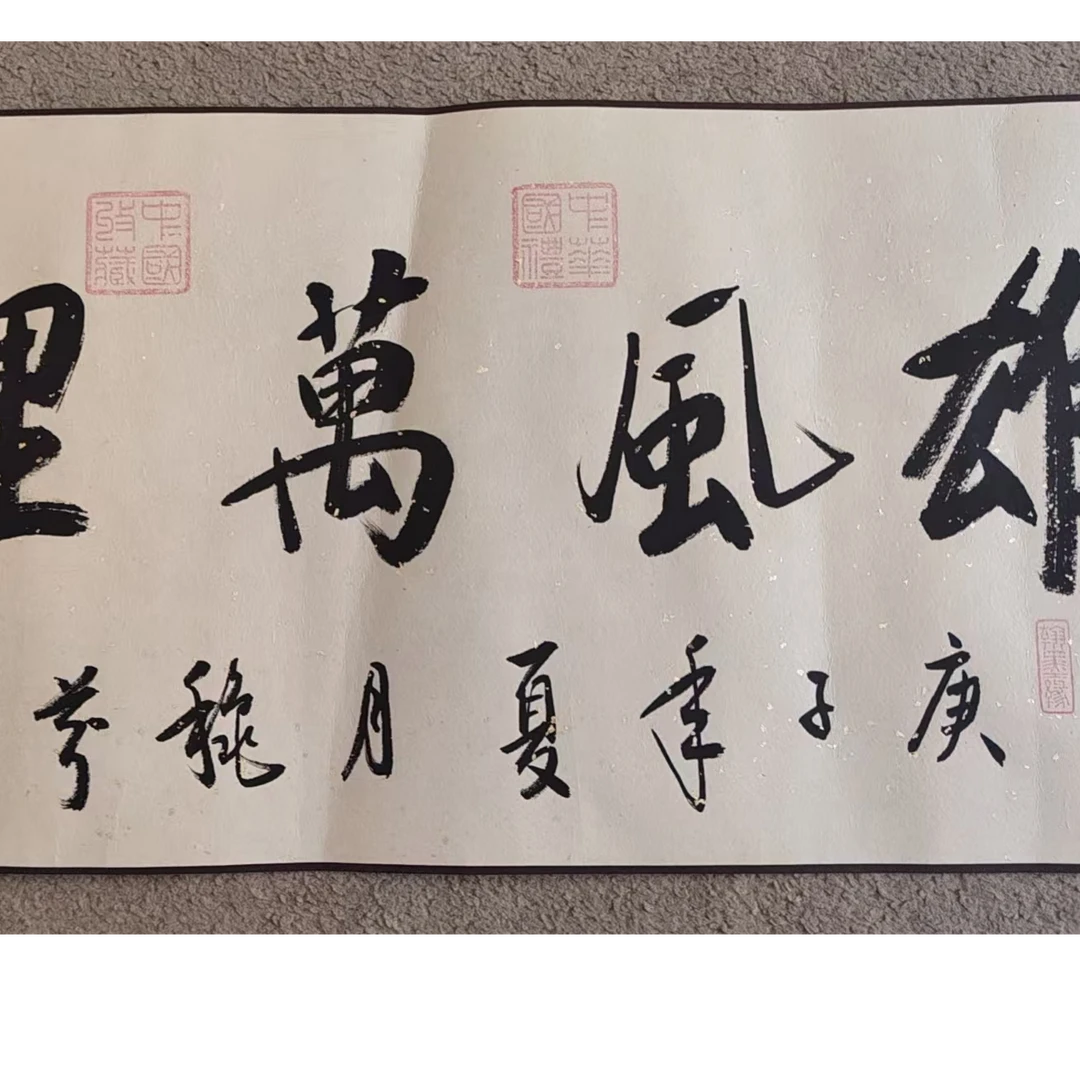 雄風萬里
庚子年夏月穆芩
中華國禮
中國收藏